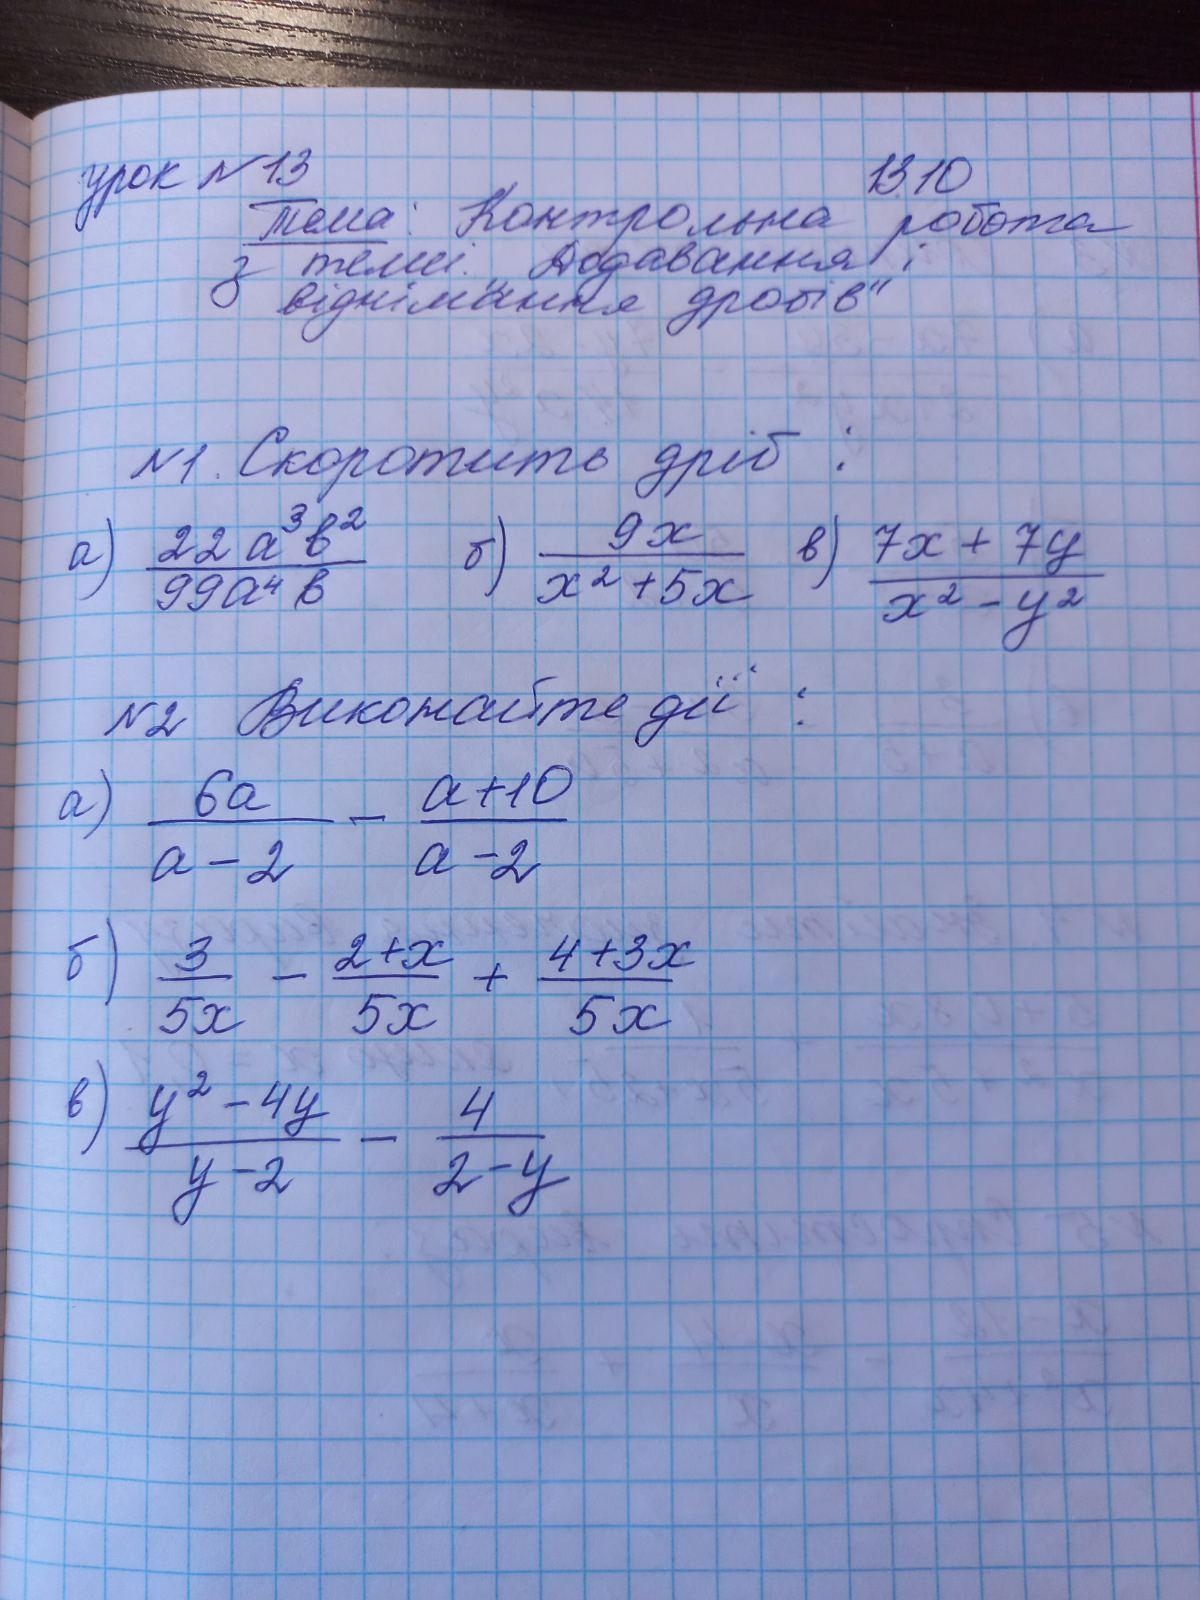 урок №13 13.10
Тема: Контрольна робота
з теми: „Додавання і
віднімання дробів"
№1. Скоротить дріб :
а) 22a³b²/99a⁴b б) 9x/x²+5x в) 7x+7y/x²-y²
№2 Виконайте дії :
а) 6a/a-2 - a+10/a-2
б) 3/5x - 2+x/5x + 4+3x/5x
в) y²-4y/y-2 - 4/2-y